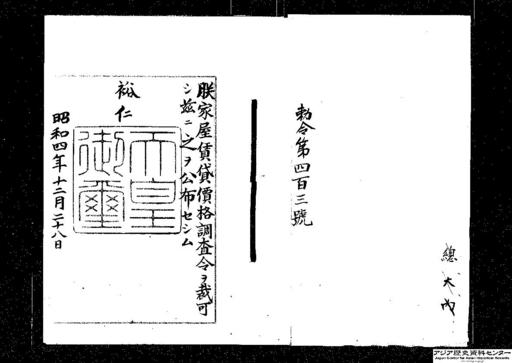 總
大
内
勅令第四百三號
朕家屋賃貸價格調査令ヲ裁可
シ茲ニ之ヲ公布セシム
裕仁
天皇御璽
昭和四年十二月二十八日
アジア歴史資料センター
Japan Center for Asian Historical Records